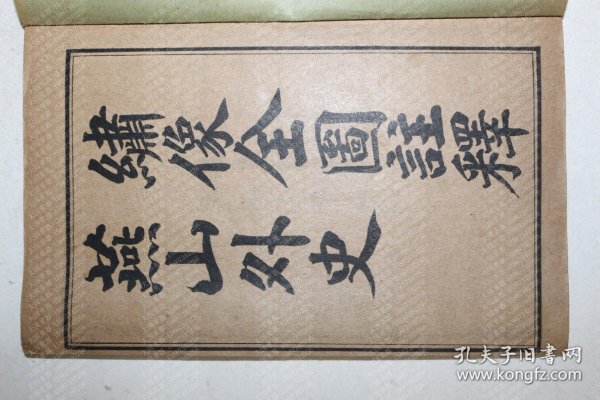 繡像全圖註釋
燕山外史
孔夫子旧书网
www.kongfz.com